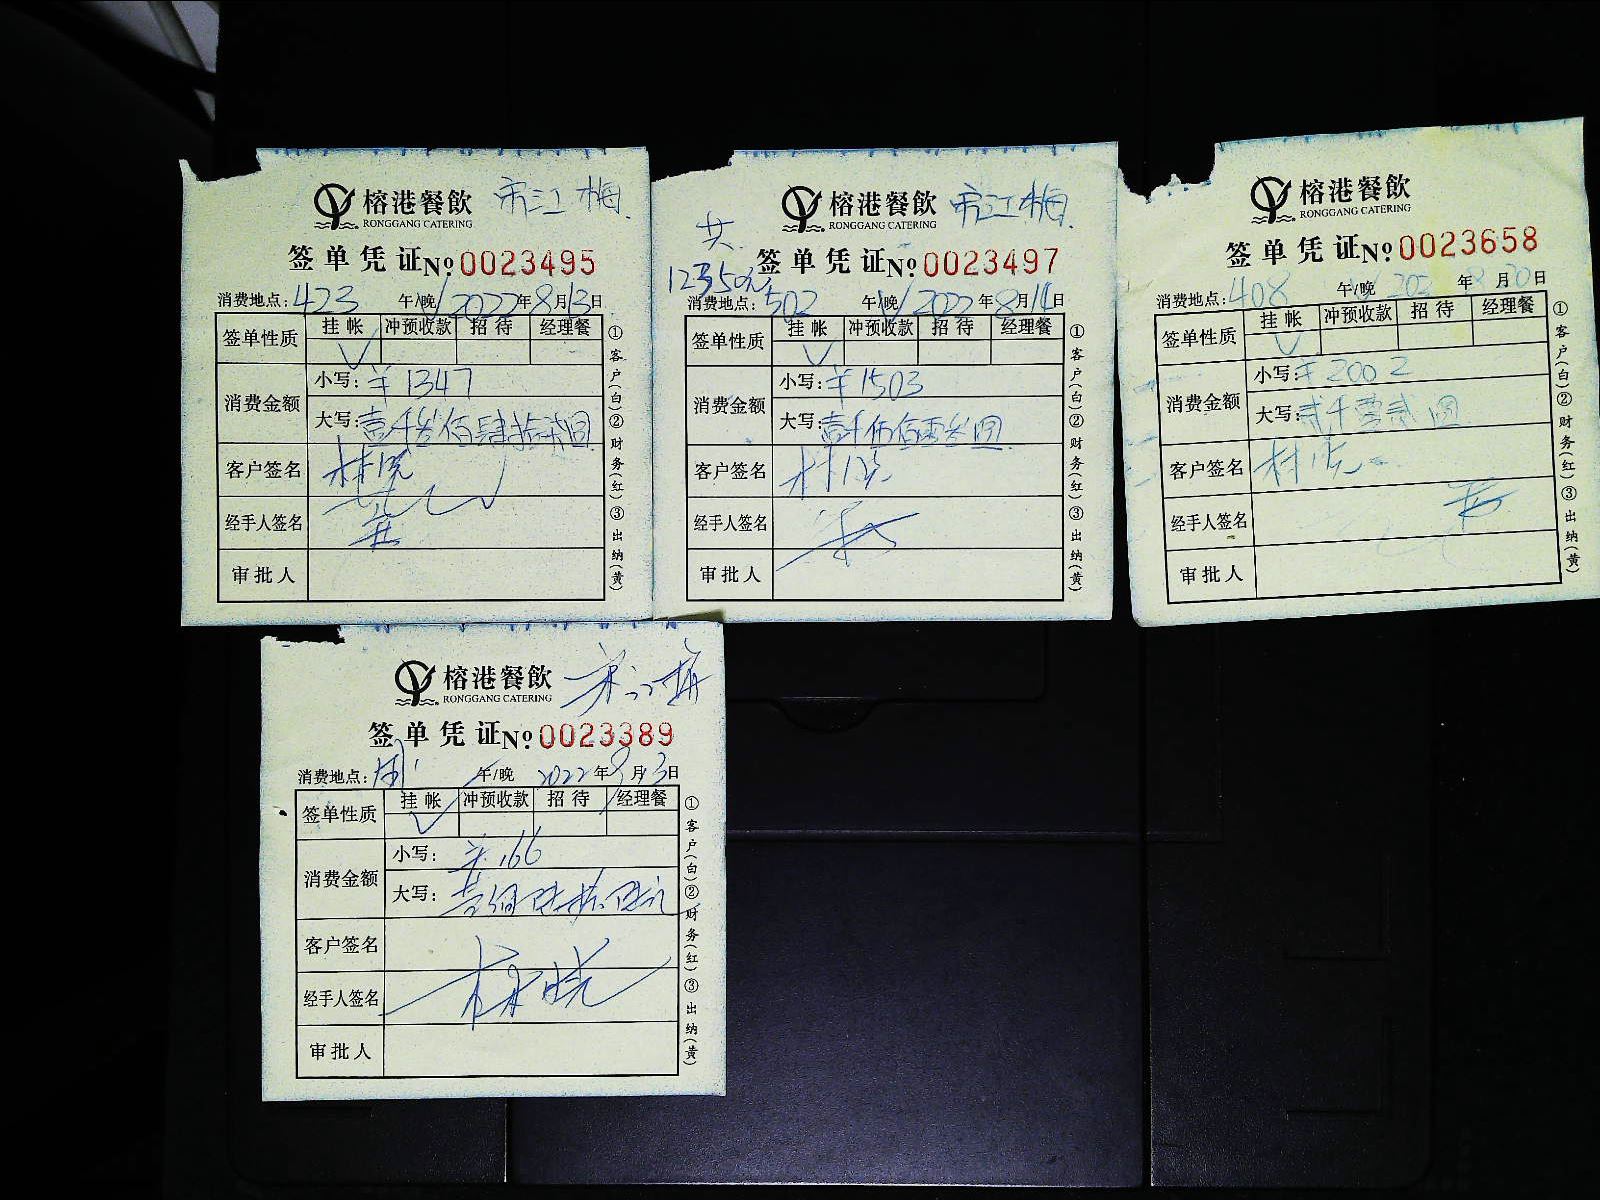 榕港餐飲 市江梅
RONGGANG CATERING
签单凭证 No 0023495
消费地点:423 午/晚 2022年8月13日
签单性质 挂帐 冲预收款 招待 经理餐
消费金额 小写:¥1347
大写:壹千叁佰肆拾 圆
客户签名 林晓
经手人签名
审批人
①客户(白)②财务(红)③出纳(黄)
榕港餐飲 市江梅
RONGGANG CATERING
共
签单凭证 No 0023497
消费地点:502 午/晚 2022年8月14日
签单性质 挂帐 冲预收款 招待 经理餐
消费金额 小写:¥1503
大写:壹千伍佰零叁圆
客户签名 林晓
经手人签名
审批人
①客户(白)②财务(红)③出纳(黄)
榕港餐飲
RONGGANG CATERING
签单凭证 No 0023658
消费地点:408 午/晚 年 月20日
签单性质 挂帐 冲预收款 招待 经理餐
消费金额 小写:¥2002
大写:贰千零贰圆
客户签名 林晓
经手人签名
审批人
①客户(白)②财务(红)③出纳(黄)
榕港餐飲 江梅
RONGGANG CATERING
签单凭证 No 0023389
消费地点: 午/晚 2022年8月13日
签单性质 挂帐 冲预收款 招待 经理餐
消费金额 小写:¥166
大写:壹佰陆拾陆元
客户签名
经手人签名 林晓
审批人
①客户(白)②财务(红)③出纳(黄)